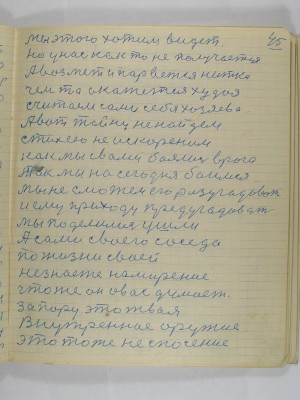 45
мы этого хотим видет
но у нас как то не получается
А возмет и парвется нитка
чем то окажется худоя
считаем сами себя хозяева
А вот тайну не найдем
стихею не искореним
как мы с вами боялис врога
Так мы на сегодня боимся
мы не сможем его разугадоват
и ему приходу предугадоват
мы поделимся ушли
А сами своего соседа
по жизни своей
незнаете намирение
что же он о вас думает.
запору этожваля
Внутренное оружие
это тоже не спосение